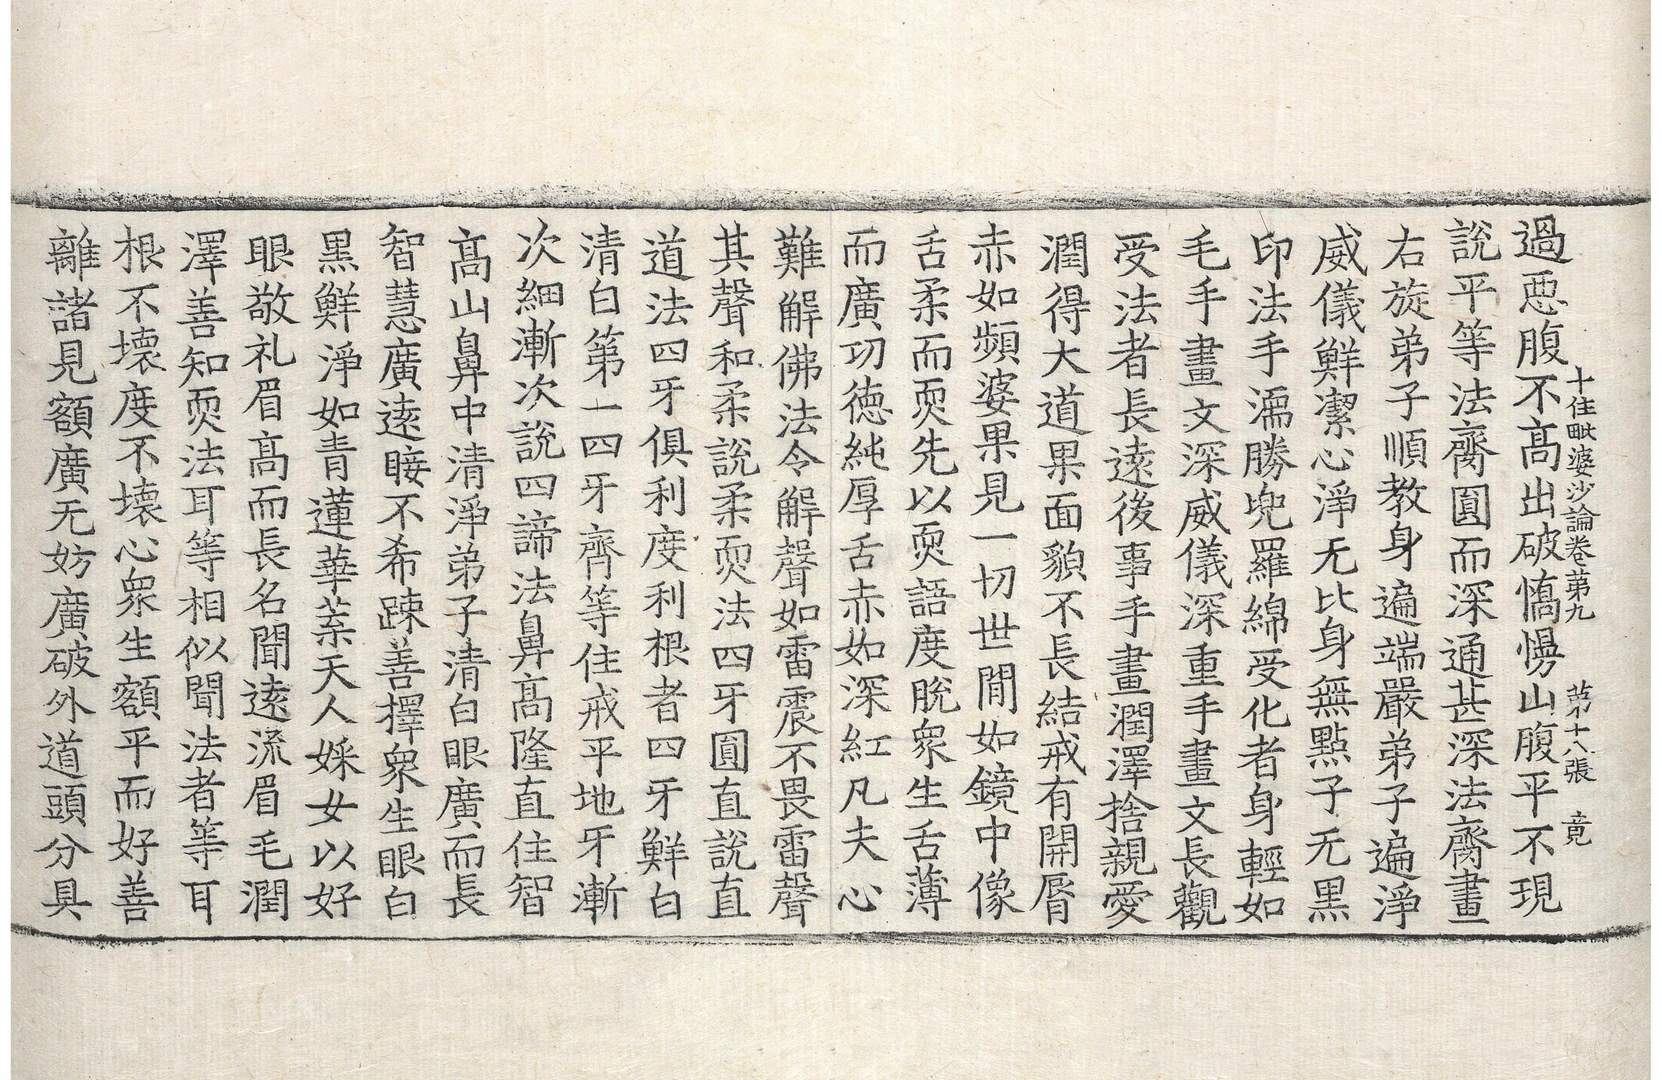 十住毗婆沙論卷第九　第十八張　竟
過惡腹不髙出破憍慢山腹平不現
說平等法齊圓而深通甚深法齊畫
右旋弟子順教身遍端嚴弟子遍淨
威儀鮮潔心淨无比身無㸃子无黑
印法手濡勝兜羅綿受化者身輕如
毛手畫文深威儀深重手畫文長觀
受法者長逺後事手畫潤澤捨親愛
潤得大道果面貌不長結戒有開脣
赤如頻婆果見一切世閒如鏡中像
舌柔而耎先以耎語度脫衆生舌薄
而廣功德純厚舌赤如深紅凡夫心
難解佛法令解聲如雷震不畏雷聲
其聲和柔說柔耎法四牙圓直說直
道法四牙俱利度利根者四牙鮮白
清白第一四牙齊等住戒平地牙漸
次細漸次說四諦法鼻髙隆直住智
髙山鼻中清淨弟子清白眼廣而長
智慧廣逺睫不希踈善擇衆生眼白
黑鮮淨如青蓮華葉天人婇女以好
眼敬礼眉髙而長名聞逺流眉毛潤
澤善知耎法耳等相似聞法者等耳
根不壞度不壞心衆生額平而好善
離諸見額廣无妨廣破外道頭分具